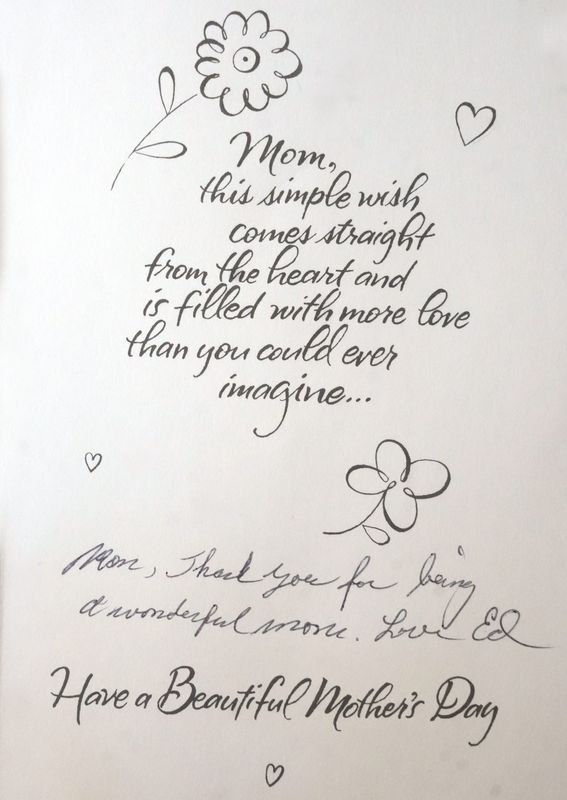 Mom,
this simple wish
comes straight
from the heart and
is filled with more love
than you could ever
imagine...
Mom, Thank you for being
a wonderful mom. Love Ed
Have a Beautiful Mother's Day